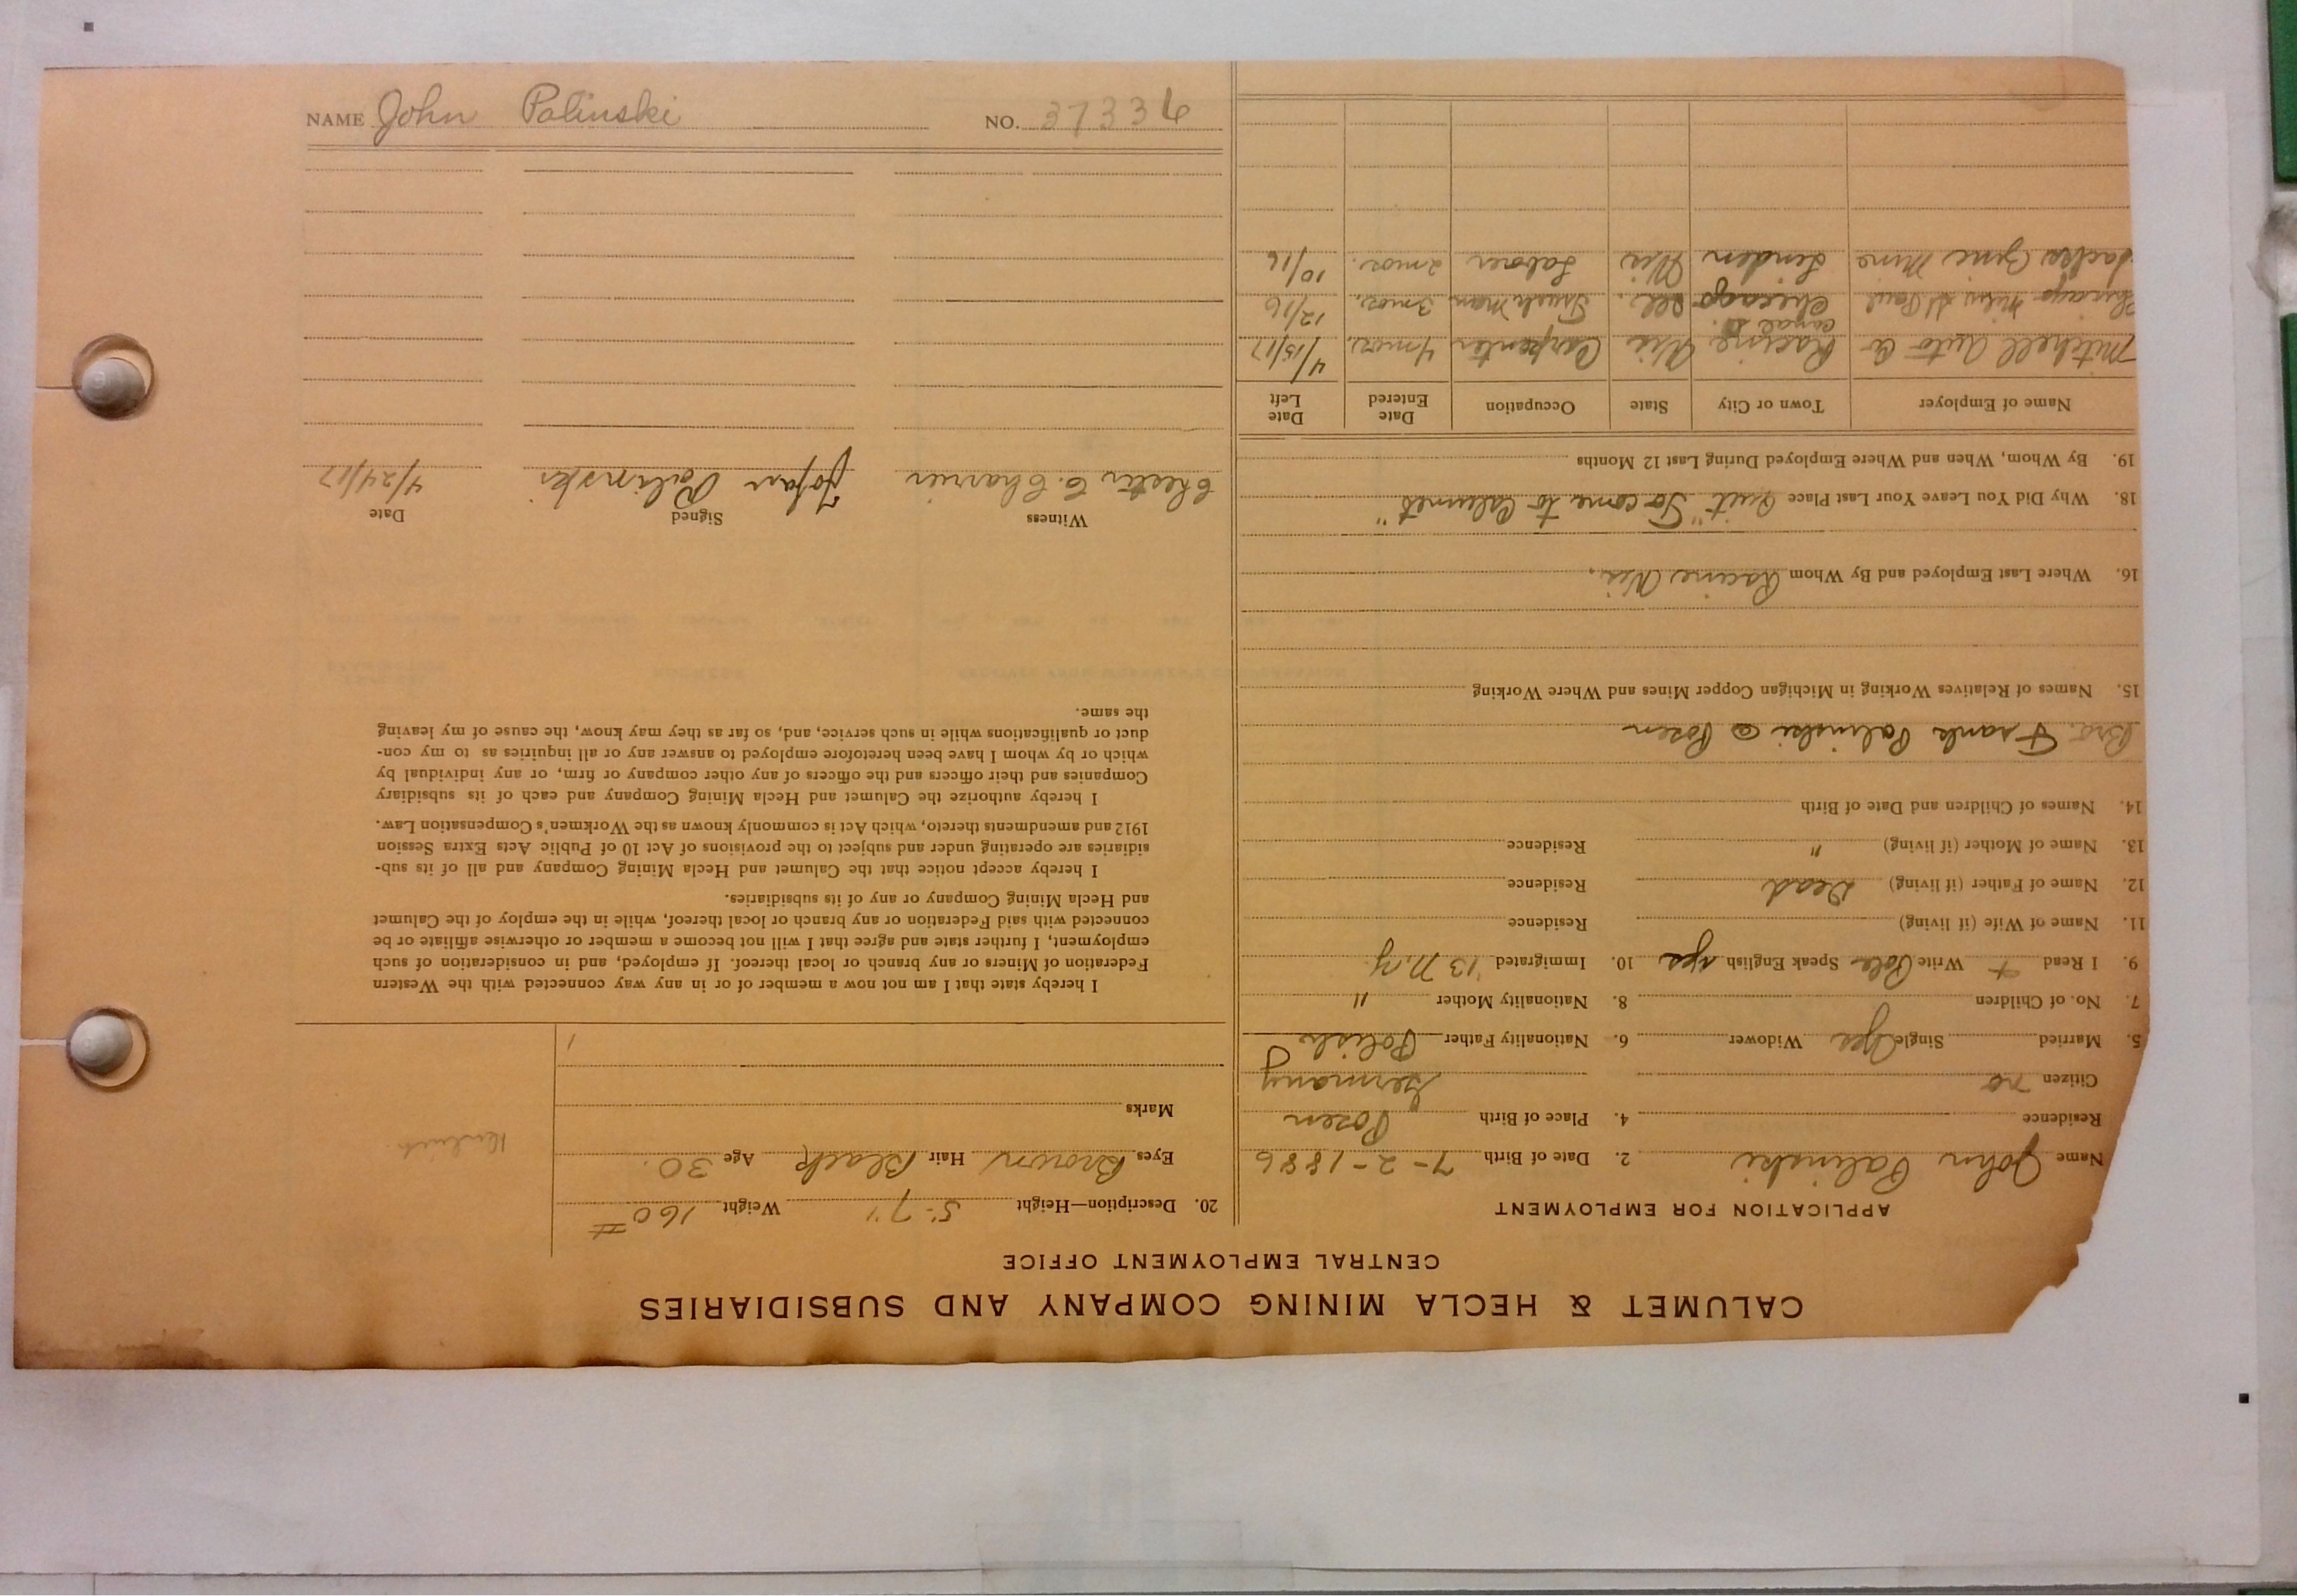 NAME John Palinski NO. 37336
CALUMET & HECLA MINING COMPANY AND SUBSIDIARIES
CENTRAL EMPLOYMENT OFFICE
APPLICATION FOR EMPLOYMENT
Name John Palinski 2. Date of Birth 7-2-1886
Residence 4. Place of Birth Posen
Citizen no Germany
5. Married Single Yes Widower 6. Nationality Father Polish
7. No. of Children 8. Nationality Mother "
9. I Read + Write Pole Speak English yes 10. Immigrated '13 N.Y.
11. Name of Wife (if living) Residence
12. Name of Father (if living) Dead Residence
13. Name of Mother (if living) " Residence
14. Names of Children and Date of Birth
Bro. Frank Palinski @ Posen
15. Names of Relatives Working in Michigan Copper Mines and Where Working
16. Where Last Employed and By Whom Racine Wis.
18. Why Did You Leave Your Last Place Quit "To come to Calumet"
19. By Whom, When and Where Employed During Last 12 Months
Name of Employer Town or City State Occupation Date Entered Date Left
Mitchell Auto Co Racine Wis Carpenter 4 mos. 4/15/17
Canal St.
Chicago Milw St Paul Chicago Ill. 3 mos. 12/16
Zinc Mine Linden Wis Laborer 2 mos. 10/16
20. Description—Height 5'-7" Weight 160 #
Eyes Brown Hair Black Age 30.
Marks
I hereby state that I am not now a member of or in any way connected with the Western
Federation of Miners or any branch or local thereof. If employed, and in consideration of such
employment, I further state and agree that I will not become a member or otherwise affiliate or be
connected with said Federation or any branch or local thereof, while in the employ of the Calumet
and Hecla Mining Company or any of its subsidiaries.
I hereby accept notice that the Calumet and Hecla Mining Company and all of its sub-
sidiaries are operating under and subject to the provisions of Act 10 of Public Acts Extra Session
1912 and amendments thereto, which Act is commonly known as the Workmen's Compensation Law.
I hereby authorize the Calumet and Hecla Mining Company and each of its subsidiary
Companies and their officers and the officers of any other company or firm, or any individual by
which or by whom I have been heretofore employed to answer any or all inquiries as to my con-
duct or qualifications while in such service, and, so far as they may know, the cause of my leaving
the same.
Witness Signed Date
Chester C. Charrier Johan Palinski 4/24/17